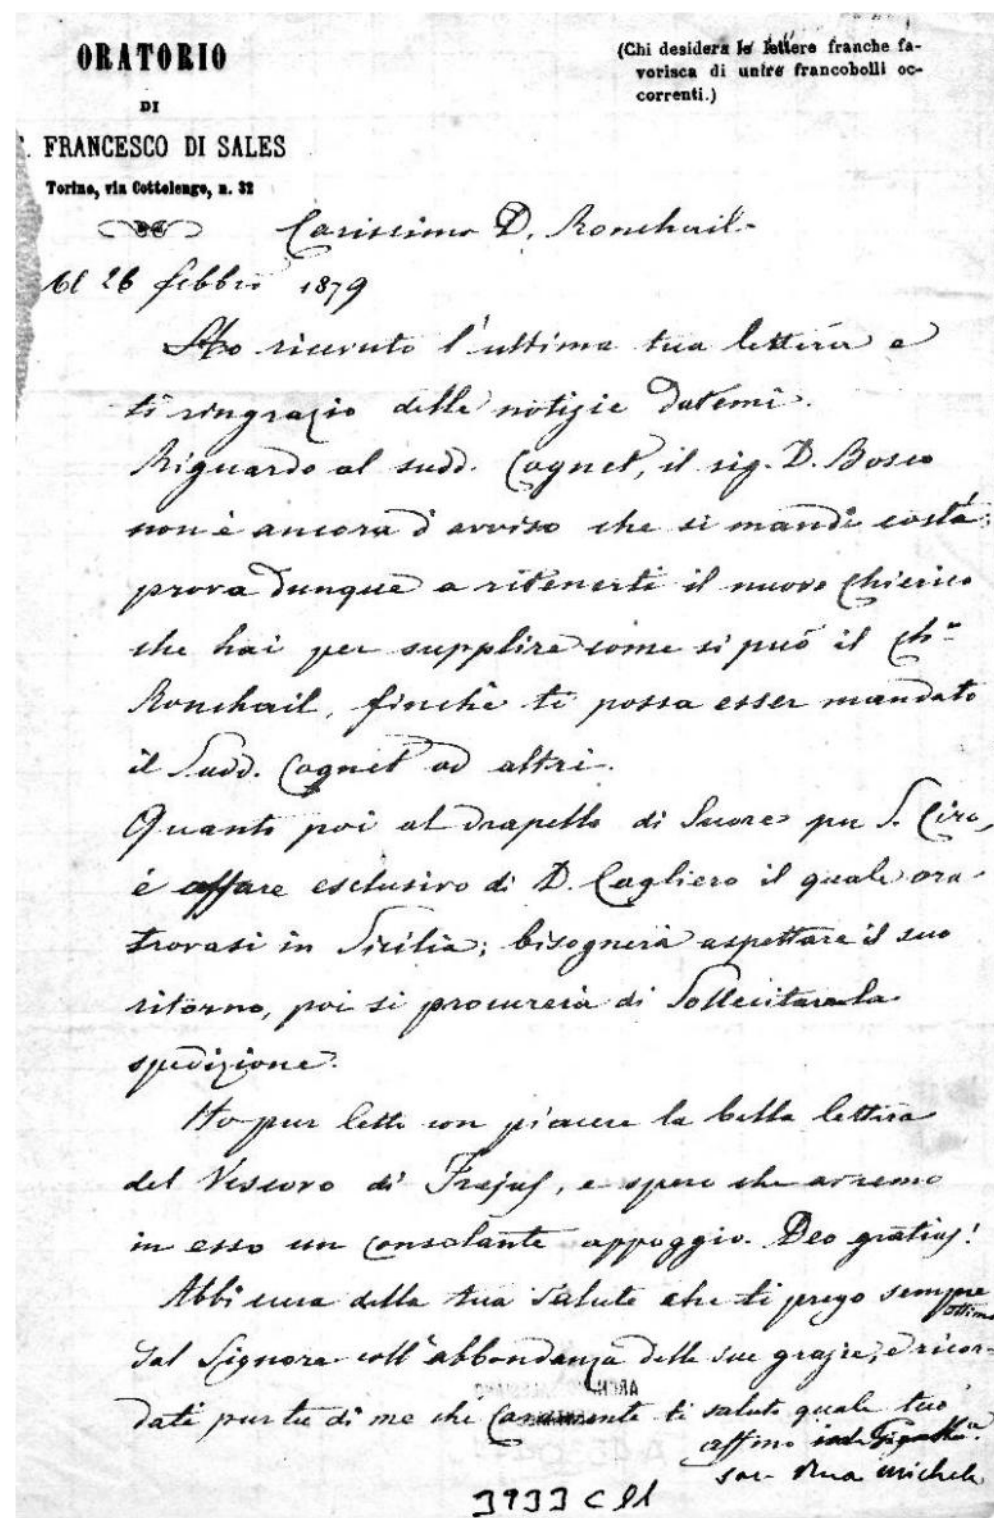 ORATORIO
DI
. FRANCESCO DI SALES
Torino, via Cottolengo, n. 32
(Chi desidera le lettere franche fa-
vorisca di unire francobolli oc-
correnti.)
Carissimo D. Ronchail
il 26 febbrio 1879
Ho ricevuto l'ultima tua lettera e
ti ringrazio delle notizie datemi.
Riguardo al sudd. Cagnet, il sig. D. Bosco
non è ancora d'avviso che si mandi costà;
prova dunque a ritenerti il nuovo chierico
che hai per supplire come si può il ch.º
Ronchail, finchè ti possa esser mandato
il Sudd. Cagnet od altri.
Quanto poi al drapello di Suore per S. Ciro,
è affare esclusivo di D. Cagliero il quale ora
trovasi in Sicilia; bisognerà aspettare il suo
ritorno, poi si procurerà di sollecitare la
spedizione.
Ho pur letto con piacere la bella lettera
del Vescovo di Frejus, e spero che avremo
in esso un consolante appoggio. Deo gratias!
Abbi cura della tua salute che ti prego sempre
ottima
dal Signore coll'abbondanza delle sue grazie, e ricor-
dati pur tu di me che caramente ti saluto quale tuo
affmo in
sac. Rua Michele
3933 C 11